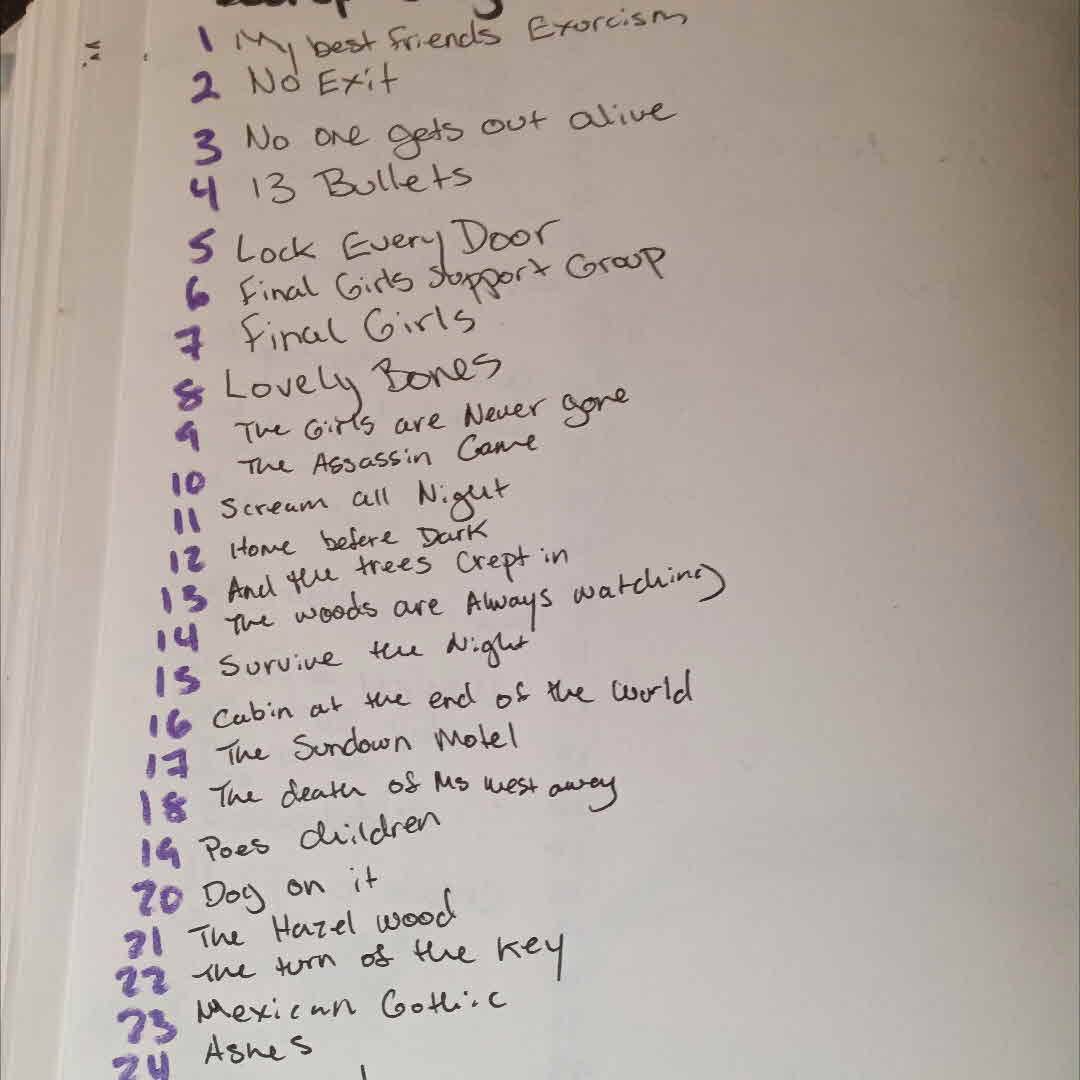 1 My best friends Exorcism
2 No Exit
3 No one gets out alive
4 13 Bullets
5 Lock Every Door
6 Final Girls Support Group
7 Final Girls
8 Lovely Bones
9 The Girls are Never gone
10 The Assassin Game
11 Scream all Night
12 Home before Dark
13 And the trees crept in
14 The woods are Always watching
15 Survive the Night
16 Cabin at the end of the world
17 The Sundown Motel
18 The death of Ms west away
19 Poes children
20 Dog on it
21 The Hazel wood
22 The turn of the key
23 Mexican Gothic
24 Ashes